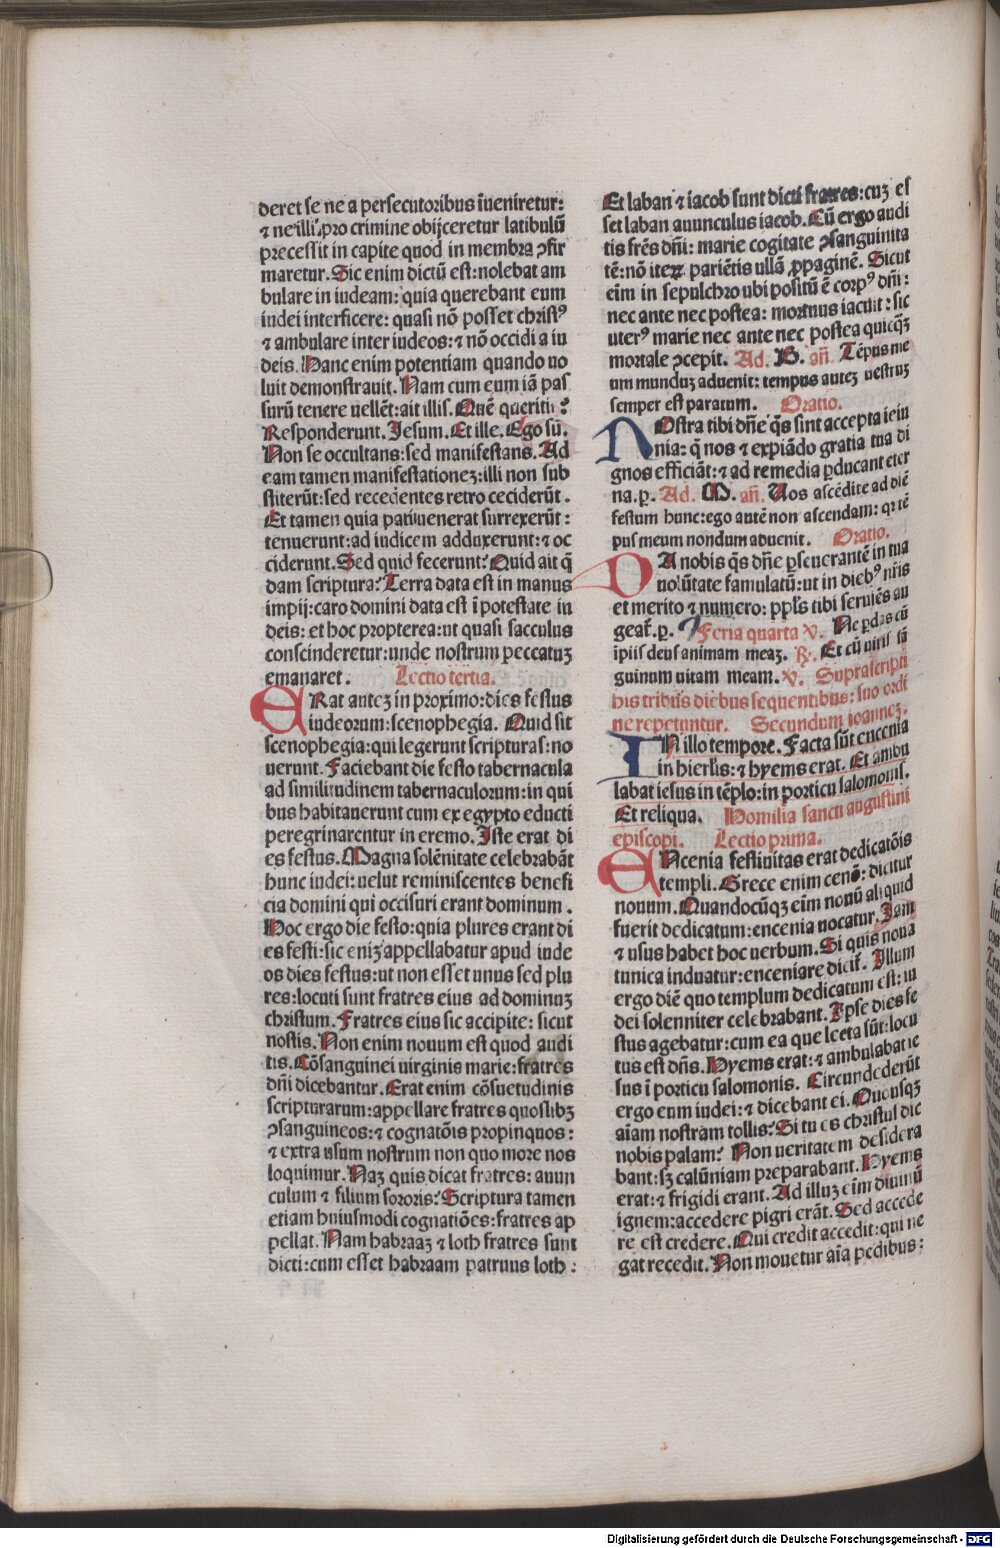 deret se ne a persecutoribus īueniretur:
⁊ ne illi⁹ pro crimine obijceretur latibulū
precessit in capite quod in membra ꝯfir
maretur. Sic enim dictū est: nolebat am
bulare in iudeam: quia querebant eum
iudei interficere: quasi nō posset christ⁹
⁊ ambulare inter iudeos: ⁊ nō occidi a iu
deis. Hanc enim potentiam quando uo
luit demonstrauit. Nam cum eum iā pas
surū tenere uellēt: ait illis. Quē queritis?
Responderunt. Jesum. Et ille. Ego sū.
Non se occultans: sed manifestans. Ad
eam tamen manifestationeꝫ: illi non sub
stiterūt: sed recedentes retro ceciderūt.
Et tamen quia pati uenerat surrexerūt:
tenuerunt: ad iudicem adduxerunt: ⁊ oc
ciderunt. Sed quid fecerunt? Quid ait q̄
dam scriptura? Terra data est in manus
impij: caro domini data est ī potestate iu
deis: et hoc propterea: ut quasi sacculus
conscinderetur: unde nostrum peccatuꝫ
emanaret. Lectio tertia.
ERat auteꝫ in proximo: dies festus
iudeorum: scenophegia. Quid sit
scenophegia: qui legerunt scripturas: no
uerunt. Faciebant die festo tabernacula
ad similitudinem tabernaculorum: in qui
bus habitauerunt cum ex egypto educti
peregrinarentur in eremo. Iste erat di
es festus. Magna solēnitate celebrabāt
hunc iudei: uelut reminiscentes benefi
cia domini qui occisuri erant dominum.
Hoc ergo die festo: quia plures erant di
es festi: sic eniꝫ appellabatur apud iude
os dies festus: ut non esset unus sed plu
res: locuti sunt fratres eius ad dominuꝫ
christum. Fratres eius sic accipite: sicut
nostis. Non enim nouum est quod audi
tis. Cōsanguinei uirginis marie: fratres
dn̄i dicebantur. Erat enim cōsuetudinis
scripturarum: appellare fratres quoslibꝫ
ꝯsanguineos: ⁊ cognatōis propinquos:
⁊ extra usum nostrum non quo more nos
loquimur. Naꝫ quis dicat fratres: auun
culum ⁊ filium sororis? Scriptura tamen
etiam huiusmodi cognatiōes: fratres ap
pellat. Nam habraaꝫ ⁊ loth fratres sunt
dicti: cum esset habraam patruus loth:
Et laban ⁊ iacob sunt dicti fratres: cuꝫ es
set laban auunculus iacob. Cū ergo audi
tis frēs dn̄i: marie cogitate ꝯsanguinita
tē: nō iteꝝ pariētis ullā ꝓpaginē. Sicut
eīm in sepulchro ubi positū ē corp⁹ dn̄i:
nec ante nec postea: mortuus iacuit: sic
uter⁹ marie nec ante nec postea quicq̄ꝫ
mortale ꝯcepit. Ad. B. an̄. Tēpus me
um munduꝫ aduenit: tempus auteꝫ uestruꝫ
semper est paratum. Oratio.
NOstra tibi dn̄e q̄s sint accepta ieiu
nia: q̄ nos ⁊ expiādo gratia tua di
gnos efficiāt: ⁊ ad remedia ꝑducant eter
na. ꝑ. Ad. M. an̄. Uos ascēdite ad diē
festum hunc: ego autē non ascendam: qr tē
pus meum nondum aduenit. Oratio.
DA nobis q̄s dn̄e ꝑseuerantē in tua
uolūtate famulatū: ut in dieb⁹ nr̄is
et merito ⁊ numero: ppl̄s tibi seruiēs au
geat̄. ꝑ. Feria quarta V. Ne ꝑdas cū
īpiis deus animam meaꝫ. ℞. Et cū uiris sā
guinum uitam meam. V. Suprascripti
his tribus diebus sequentibus: suo ordi
ne repetuntur. Secundum ioanneꝫ.
IN illo tempore. Facta sūt encenia
in hierl̄is: ⁊ hyems erat. Et ambu
labat iesus in tēplo: in porticu salomonis.
Et reliqua. Homilia sancti augustini
episcopi. Lectio prima.
ENcenia festiuitas erat dedicatōis
templi. Grece enim cenō: dicitur
nouum. Quandocūqꝫ eīm nouū aliquid
fuerit dedicatum: encenia nocatur. Jam
⁊ usus habet hoc uerbum. Si quis noua
tunica induatur: enceniare dicit̄. Illum
ergo diē quo templum dedicatum est: iu
dei solenniter celebrabant. Ipse dies fe
stus agebatur: cum ea que lecta sūt: locu
tus est dn̄s. Hyems erat: ⁊ ambulabat ie
sus ī porticu salomonis. Circundederūt
ergo eum iudei: ⁊ dicebant ei. Quousqꝫ
aīam nostram tollis? Si tu es christus dic
nobis palam? Non ueritatem desidera
bant: sꝫ calūniam preparabant. Hyems
erat: ⁊ frigidi erant. Ad illuꝫ eīm diuinū
ignem: accedere pigri erāt. Sed accede
re est credere. Qui credit accedit: qui ne
gat recedit. Non mouetur aīa pedibus:
Digitalisierung gefördert durch die Deutsche Forschungsgemeinschaft - DFG